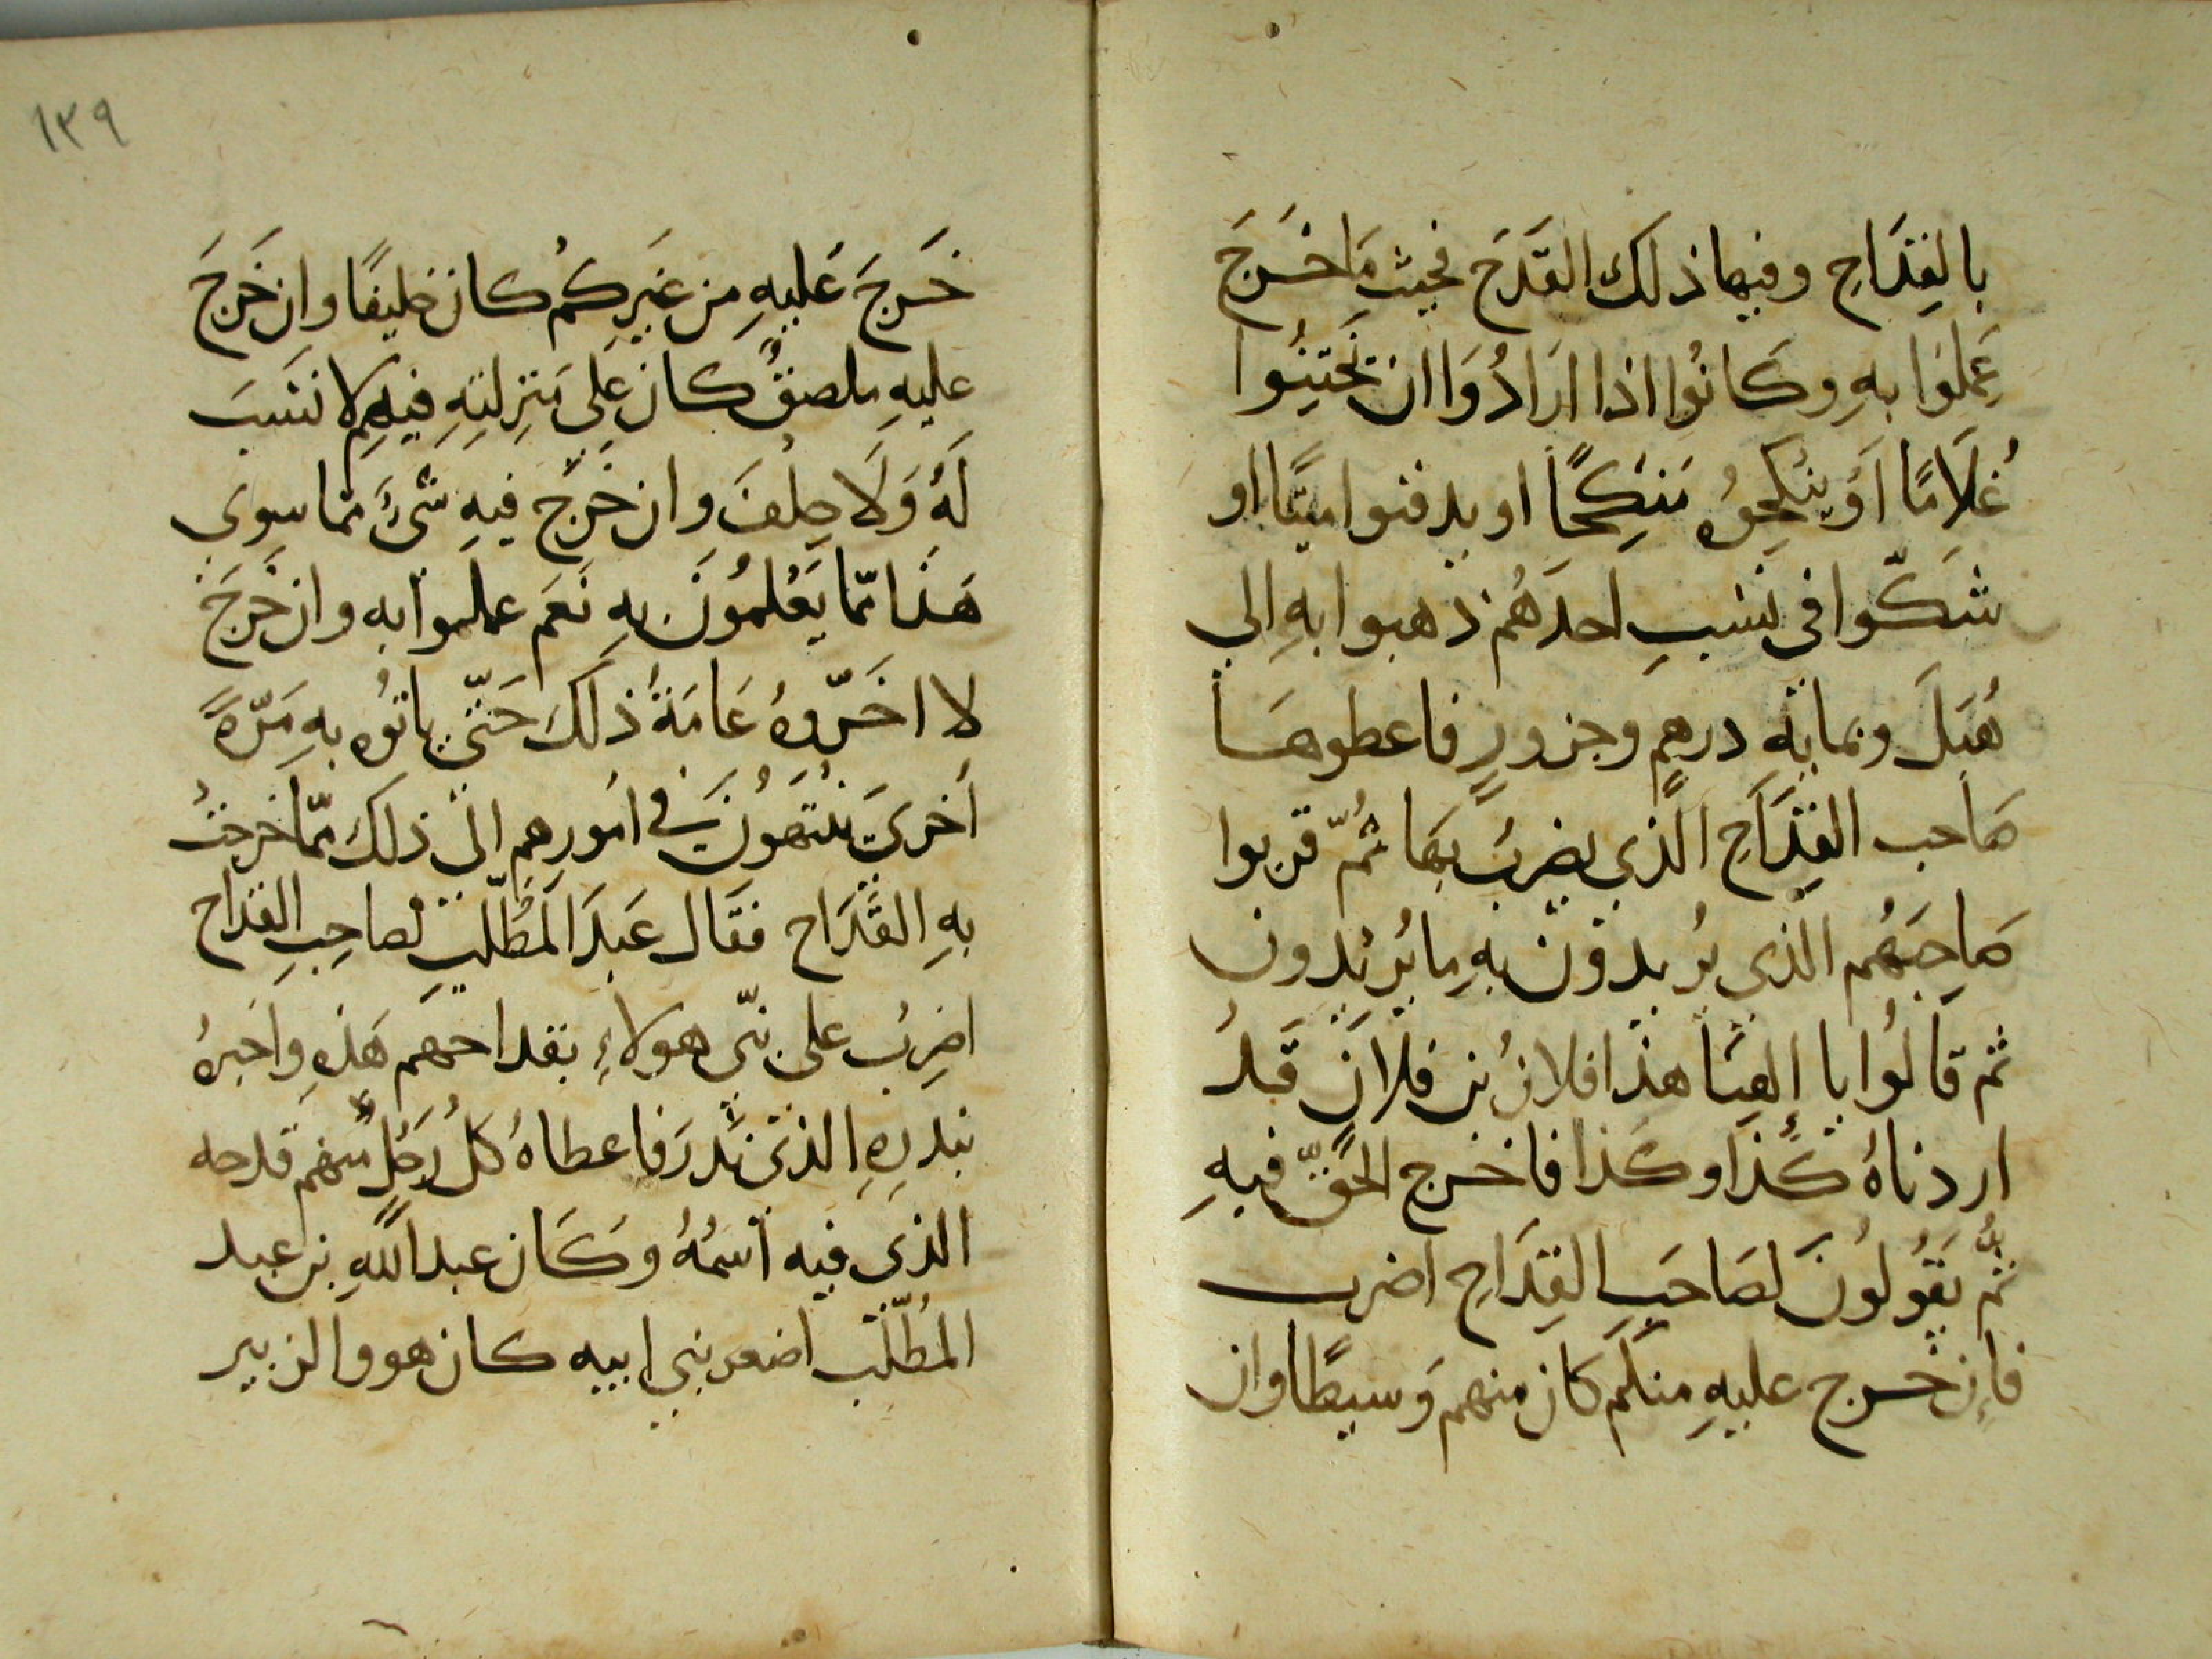 بالقِدَاحِ وفيها ذلك القَدَح فحيث مَا خَرَجَ
عَمِلوَا بهِ وكَانُوا اذا ارَادُوَا ان يَختِنُوا
غُلَامًا اَوْ ينكِحُوُه مَنكِحًا او يدفنوا ميتًا او
شَكّوا في نسَبِ احدَهُم ذهبوا بهِ الى
هُبَلَ وبمايةِ درهمٍ وجزورٍ فاعطوهَا
صَاحب القِدَاحِ الّذي يضربُ بهَا ثُمّ قربوا
صَاحِبَهُم الذي يُريدوُن بهِ ما يُريُدون
ثم قَالوُا يا إلهنا هذا فلانُ بن فلانٍ قَدُ
اردناهُ كَذا وكَذا فاخرج الحَقّ فيهِ
ثُمّ يَقُولُونَ لصَاحبِ القِدَاحِ اضرب
فإن خرج عليهِ منكم كان منهم وَسيطًا وان
١٣٩
خَرجَ عَليهِ من غيَرِكمُ كان حَليفًا وان خَرجَ
عليهِ ملصقٌ كان عَلى مَنزلتهِ فيهِم لا نسَبَ
لَهُ وَلَا حِلْفَ وان خَرَج فيهِ شىءٌ مما سوى
هَذا ممّا يَعْلمُونَ بهِ نَعَم عملوا به وان خَرَجَ
لا اخَّروهُ عَامَهُ ذلكَ حَتّى ياتوُه بهِ مَرّةً
اَخرىَ ينتَهوُنَ في اموُرهِم الى ذلكَ ممّا خرجتُ
بهِ القَدَاح فقَال عَبدَ المَطّلبِ لصاحِبِ القدَاح
اضرِبُ على بَنّي هولاءِ بقداحهَم هَذهِ واخَبرهُ
بنذرِهِ الذى نَذرَ فاعطاهُ كلُ رَجُلٍ مّنهم قدحه
الذى فيه اسمُهُ وكَان عبد اللهِ بن عبد
المُطّلّب اصغر بني ابيه كان هو والزبير